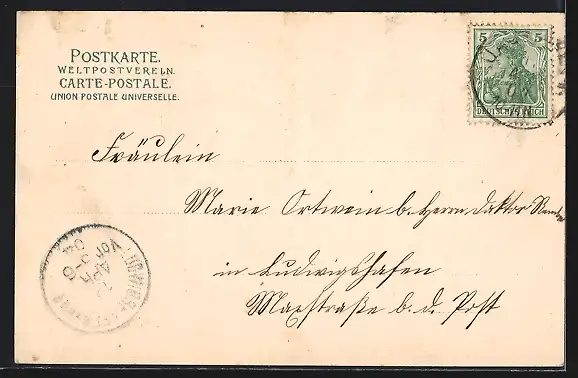 POSTKARTE.
WELTPOSTVEREIN.
CARTE-POSTALE.
UNION POSTALE UNIVERSELLE.
5 5
DEUTSCHES REICH
Fräulein
Marie Ortwein b. Herrn Doktor
in Ludwigshafen
Maxstraße b. d. Post